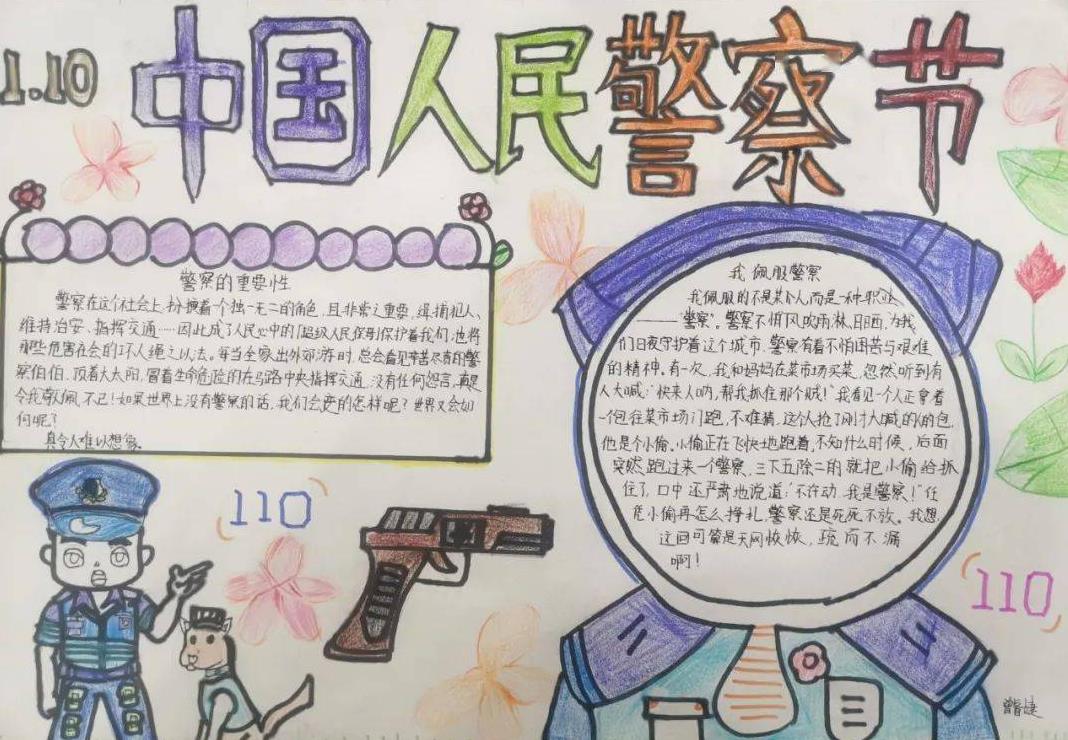 1.10
中国人民警察节
警察的重要性
警察在这个社会上,扮演着一个独一无二的角色,且非常之重要,缉捕犯人、
维持治安、指挥交通……因此成了人民心中的「超级人民保母」保护着我们,也将
那些危害社会的坏人绳之以法。每当全家出外郊游时,总会看见辛苦尽责的警
察伯伯,顶着大太阳,冒着生命危险的在马路中央指挥交通,没有任何怨言,真是
令我敬佩不已!如果世界上没有警察的话,我们会变的怎样呢?世界又会如
何呢?
真令人难以想象。
我佩服警察
我佩服的不是某个人,而是一种职业
——“警察”。警察不怕风吹雨淋,日晒,为我
们日夜守护着这个城市,警察有着不怕困苦与艰难
的精神。有一次,我和妈妈在菜市场买菜,忽然听到有
人大喊:“快来人呐,帮我抓住那个贼!”我看见一个人正拿着
一个包往菜市场门跑,不难猜,这个人抢了刚才大喊的人的包,
他是个小偷。小偷正在飞快地跑着,不知什么时候,后面
突然跑过来一个警察,三下五除二的就把小偷给抓
住了,口中还严肃地说道:“不许动,我是警察!”任
凭小偷再怎么挣扎,警察还是死死不放。我想
这回可算是天网恢恢,疏而不漏
啊!
110
110